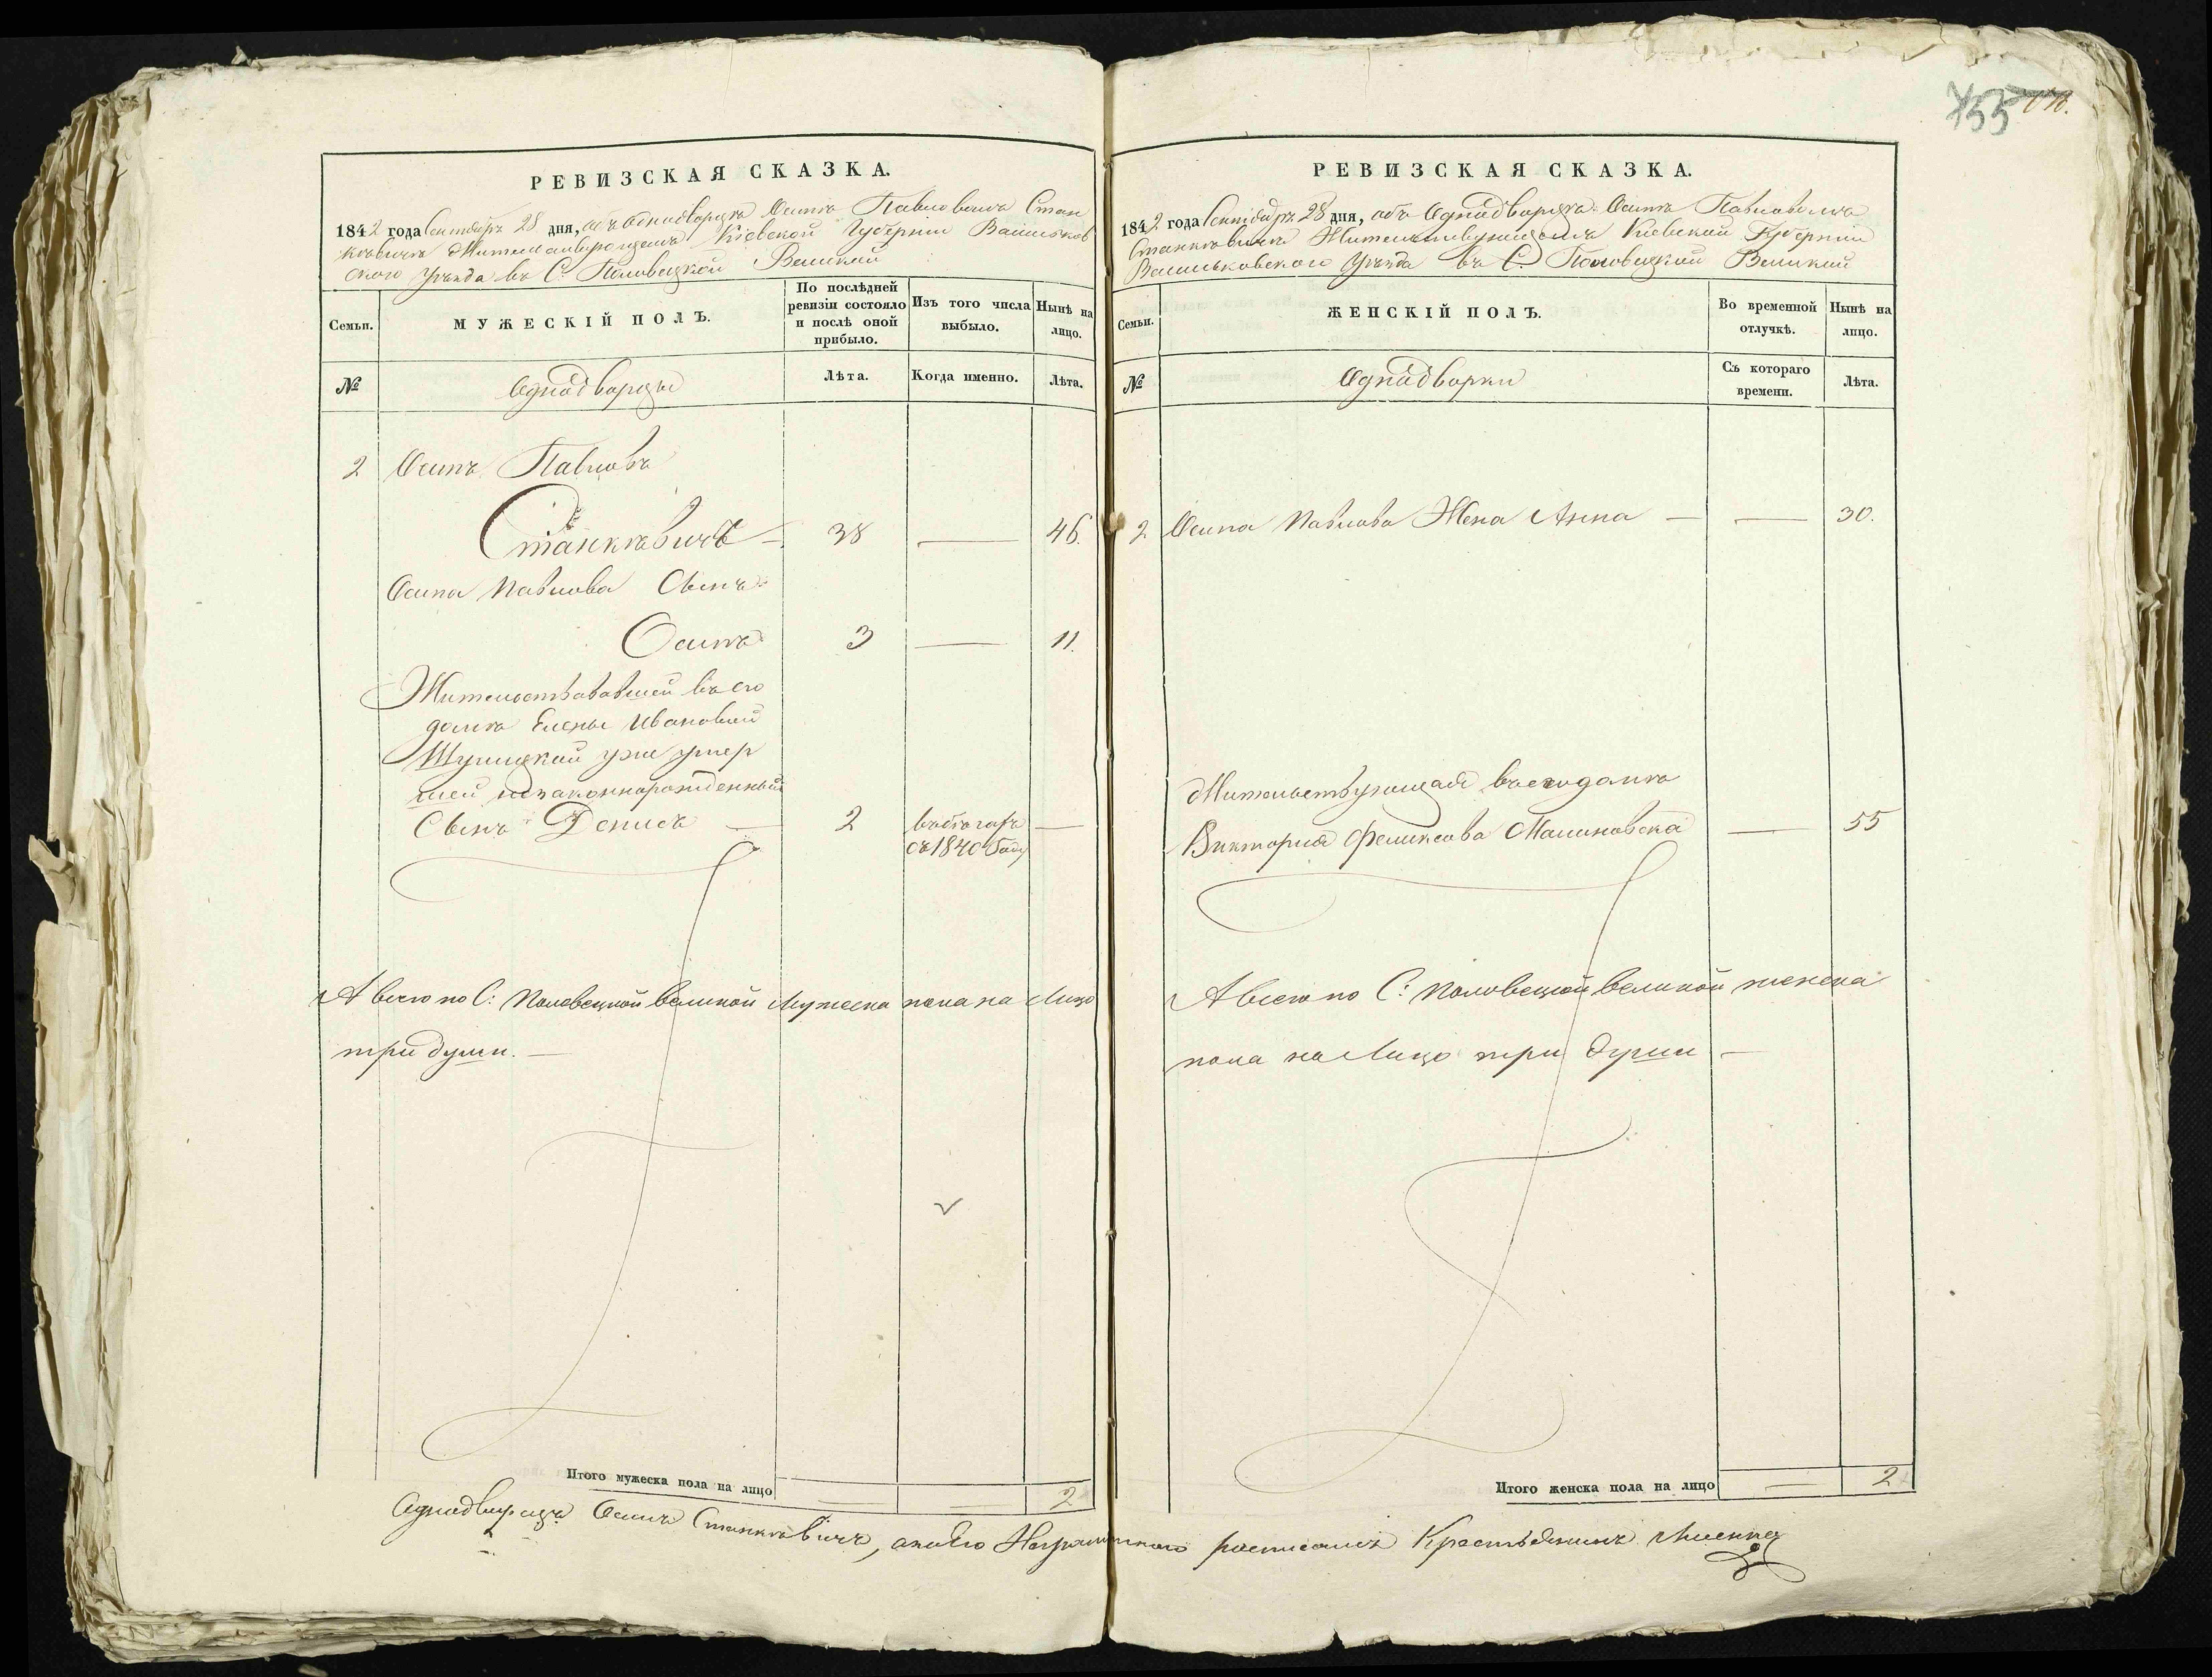 755
РЕВИЗСКАЯ СКАЗКА.
1842 года Сентября 28 дня, объ Однодворцѣ Осипѣ Павловичѣ Стан
кѣвичѣ Жительствующемъ Кіевской Губерніи Васильков
ского Уѣзда въ С. Половецкой Великой
Семьи.
МУЖЕСКІЙ ПОЛЪ.
По послѣдней
ревизіи состояло
и послѣ оной
прибыло.
Изъ того числа
выбыло.
Нынѣ на
лицо.
№
Однодворцы
Лѣта.
Когда именно.
Лѣта.
2 Осипъ Павловъ
Станкѣвичъ — 38 — 46.
Осипа Павлова Сынъ
Осипъ 3 — 11.
Жительствовавшей въ его
домѣ Елены Ивановой
уже умер
шей незаконнорожденный
Сынъ Денисъ — 2 въ бѣгахъ —
съ 1840 Году
А всего по С: Половецкой великой Мужеска пола на Лицо
три души. —
Итого мужеска пола на лицо — — 2
РЕВИЗСКАЯ СКАЗКА.
1842 года Сентября 28 дня, объ Однодворцѣ Осипѣ Павловичѣ
Станкѣвичѣ Жительствующемъ Кіевской Губерніи
Васильковского Уѣзда въ С. Половецкой Великой
Семьи.
ЖЕНСКІЙ ПОЛЪ.
Во временной
отлучкѣ.
Нынѣ на
лицо.
№
Однодворки
Съ котораго
времени.
Лѣта.
2 Осипа Павлова Жена Анна — — 30.
Жительствующая въ его домѣ
Виктория Феликсова Малиновска — 55
А всего по С: Половецкой великой женска
пола на Лицо три души —
Итого женска пола на лицо — 2
Однодворецъ Осипъ Станкѣвичъ, а по его Неграмотного росписался Крестьянинъ